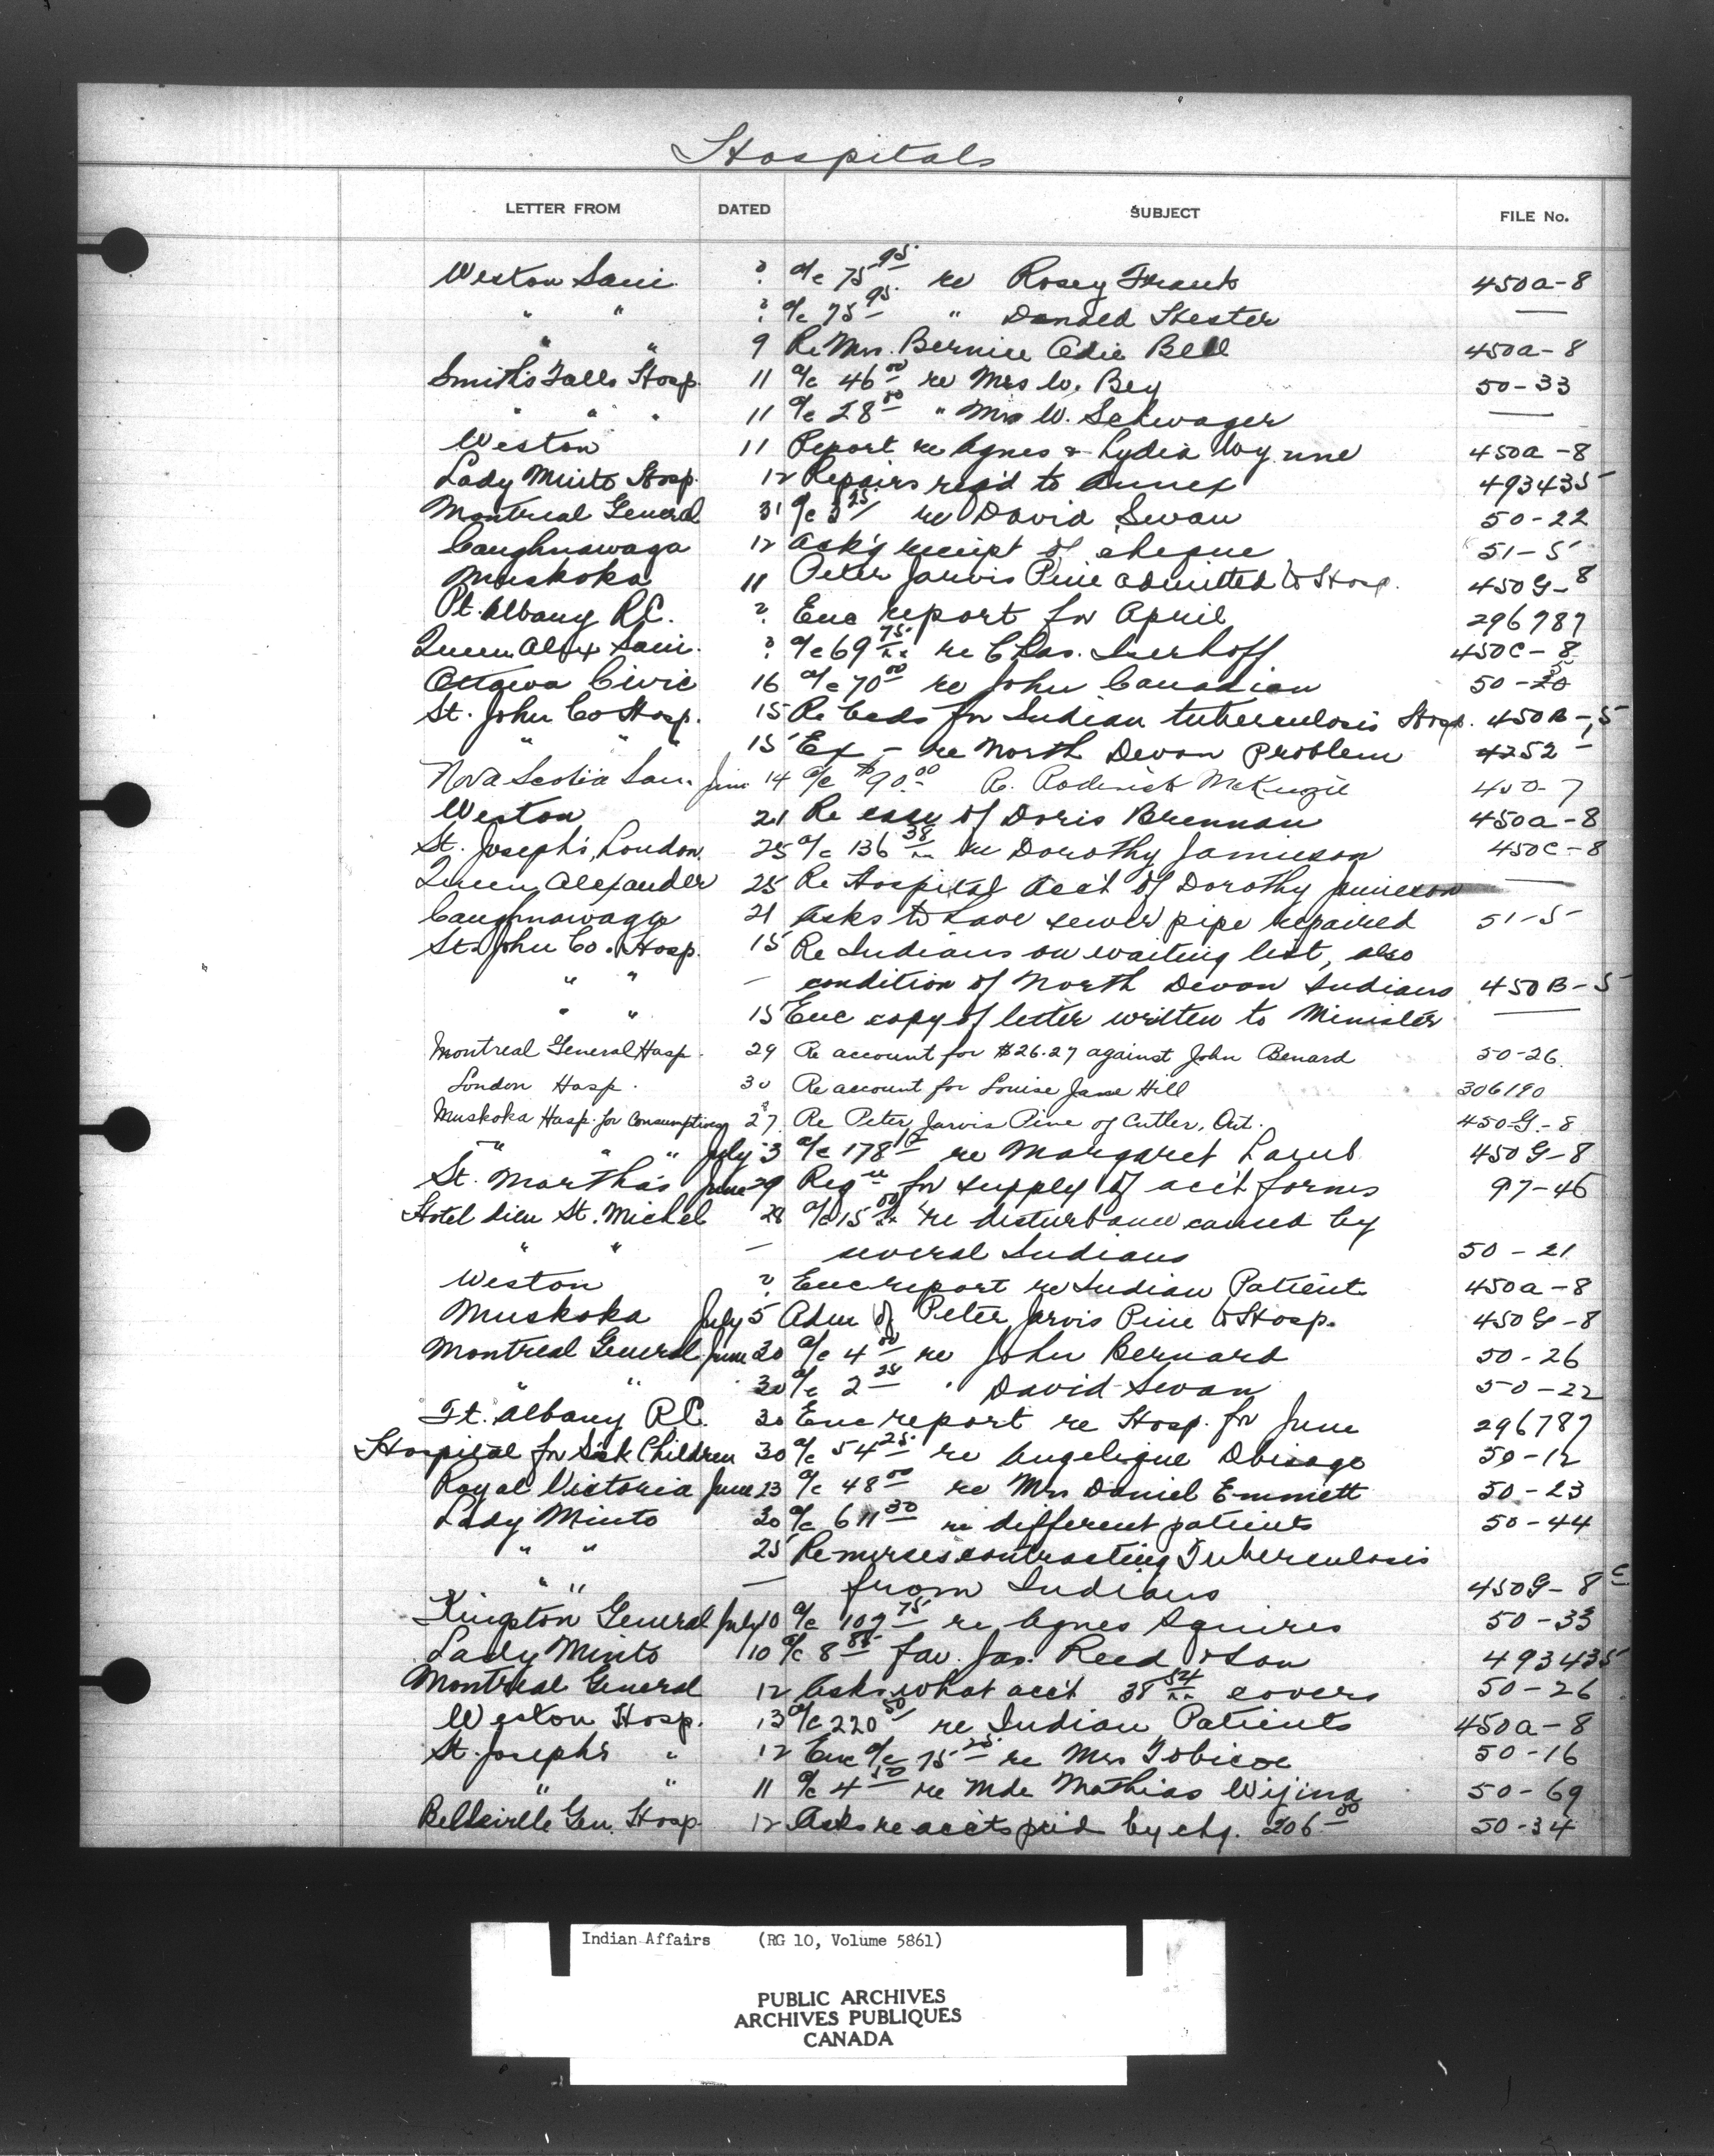 Hospitals
LETTER FROM DATED SUBJECT FILE No.
Weston Sani. ? a/c 75 95 re Rosey Frank 450a-8
" " ? a/c 75 95 " Donald Hester —
" " 9 Re Mrs. Bernice Adie Bell 450a-8
Smith's Falls Hosp. 11 a/c 46 00 re Mrs W. Bey 50-33
" " " 11 a/c 28 00 " Mrs W. Schwager —
Weston 11 Report re Agnes & Lydia Wynne 450a-8
Lady Minto Hosp. 12 Repairs req'd to Annex 493435
Montreal General 31 a/c 3 25 re David Swan 50-22
Caughnawaga 12 Ack'g receipt of cheque 51-5
Muskoka 11 Peter Jarvis Pine admitted to Hosp. 450G-8
Ft. Albany R.C. ? Enc report for April 296787
Queen Alex Sani. ? a/c 69 75 re Chas. Iserhoff 450C-8
Ottawa Civic 16 a/c 70 00 re John Canadian 50-
St. John Co Hosp. 15 Re beds for Indian tuberculosis Hosp. 450B-5
" " " 15 Ex - re North Devon Problem 4252-
Nova Scotia San. June 14 a/c $90.00 Re. Roderick McKenzie 450-7
Weston 21 Re case of Doris Brennan 450a-8
St. Joseph's, London 25 a/c 136 38 re Dorothy Jamieson 450C-8
Queen Alexander 25 Re Hospital Acc't of Dorothy Jamieson —
Caughnawaga 21 Asks to have sewer pipe repaired 51-5
St. John Co. Hosp. 15 Re Indians on waiting list, also
" " — condition of North Devon Indians 450B-5
" " 15 Enc copy of letter written to Minister —
Montreal General Hosp. 29 Re account for $26.27 against John Benard 50-26
London Hosp. 30 Re account for Louise Jane Hill 306190
Muskoka Hosp. for Consumptives 27? Re Peter Jarvis Pine of Cutler, Ont. 450-G.-8
" " " July 3 a/c 178 re Margaret 450G-8
St. Martha's June 29 Reqn for supply of acc't forms 97-46
Hotel Dieu St. Michel 28 a/c 15 00 re disturbance caused by
" " — several Indians 50-21
Weston ? Enc report re Indian Patients 450a-8
Muskoka July 5 Adm of Peter Jarvis Pine to Hosp. 450G-8
Montreal General June 30 a/c 4 00 re John Bernard 50-26
" " 30 a/c 2 25 " David Swan 50-22
Ft. Albany R.C. 30 Enc report re Hosp. for June 296787
Hospital for Sick Children 30 a/c 54 25 re Angelique Obisago 50-12
Royal Victoria June 23 a/c 48 00 re Mrs Daniel Emmett 50-23
Lady Minto 30 a/c 611 30 re different patients 50-44
" " 25 Re nurses contracting Tuberculosis
" " — from Indians 450G-8
Kingston General July 10 a/c 107 75 re Agnes Squires 50-33
Lady Minto 10 a/c 8 85 fav. Jas. Reed & Son 493435
Montreal General 12 Asks what acc't 38 54 covers 50-26
Weston Hosp. 13 a/c 220 50 re Indian Patients 450a-8
St. Joseph's " 12 Enc a/c 75 25 re Mrs Tobicoe 50-16
" " 11 a/c 4 50 re Mde Mathias Wijina 50-69
Belleville Gen. Hosp. 12 Asks re acc'ts paid by chq. 206 50 50-34
Indian Affairs (RG 10, Volume 5861)
PUBLIC ARCHIVES
ARCHIVES PUBLIQUES
CANADA